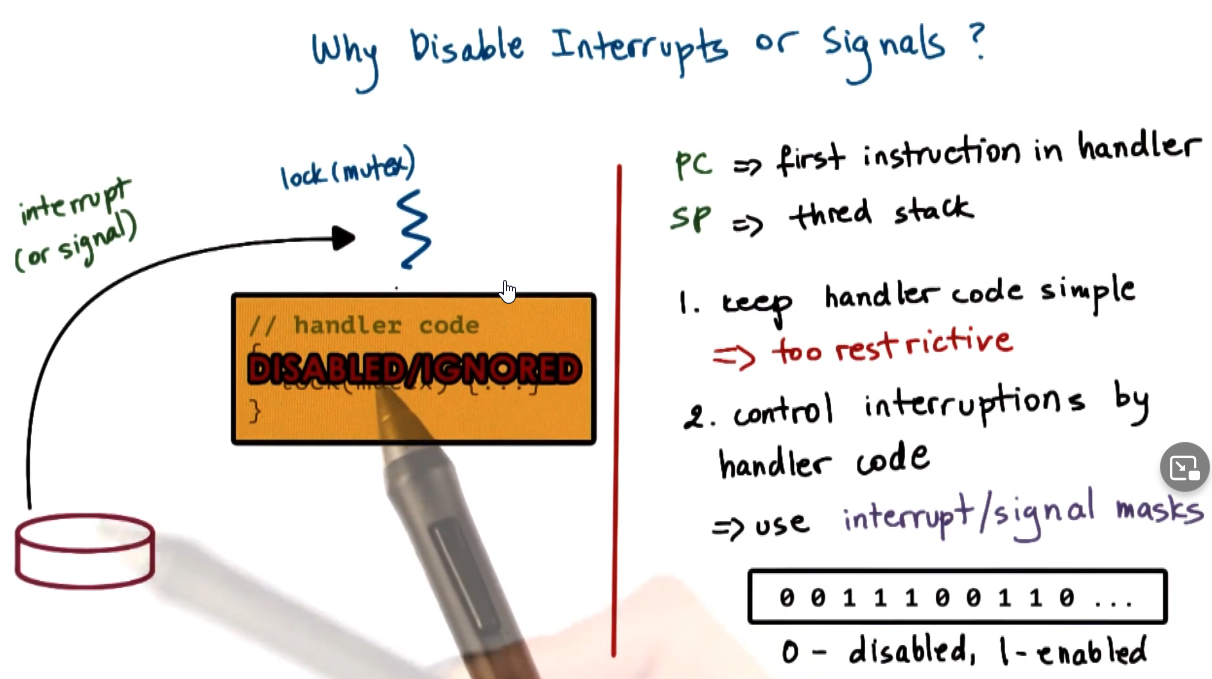 Why Disable Interrupts or Signals ?
interrupt
(or signal)
lock(mutex)
// handler code
{
DISABLED/IGNORED
}
PC => first instruction in handler
SP => thred stack
1. keep handler code simple
=> too restrictive
2. control interruptions by
handler code
=> use interrupt/signal masks
0 0 1 1 1 0 0 1 1 0 ...
0 - disabled, 1-enabled